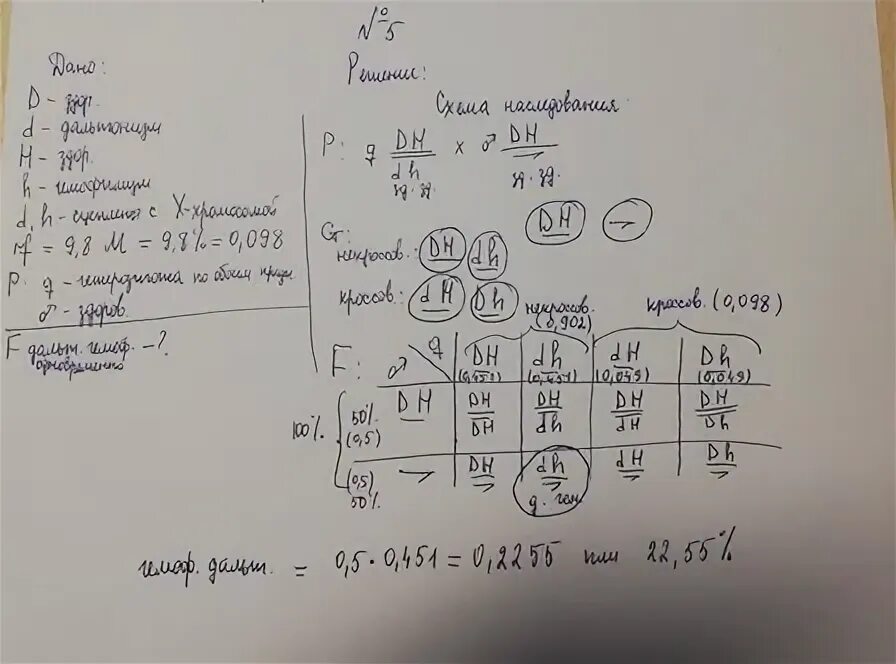 №5
Дано:
D - здор.
d - дальтонизм
H - здор.
h - гемофилия
d, h - сцеплены с X-хромосомой
rf = 9,8 M = 9,8% = 0,098
P: ♀ - гетерозигота по обоим призн.
♂ - здоров.
F дальт. гемоф. - ?
одновременно
Решение:
Схема наследования
P: ♀ DH x ♂ DH
dh
зд. зд. зд. зд.
G:
некроссов.: DH dh DH →
кроссов.: dH Dh
некроссов. (0,902) кроссов. (0,098)
F: ♂ ♀ DH dh dH Dh
(0,451) (0,451) (0,049) (0,049)
100% 50% (0,5) DH DH DH DH DH
DH dh dH Dh
(0,5) 50% → DH dh dH Dh
д. гем.
гемоф. дальт. = 0,5 · 0,451 = 0,2255 или 22,55%